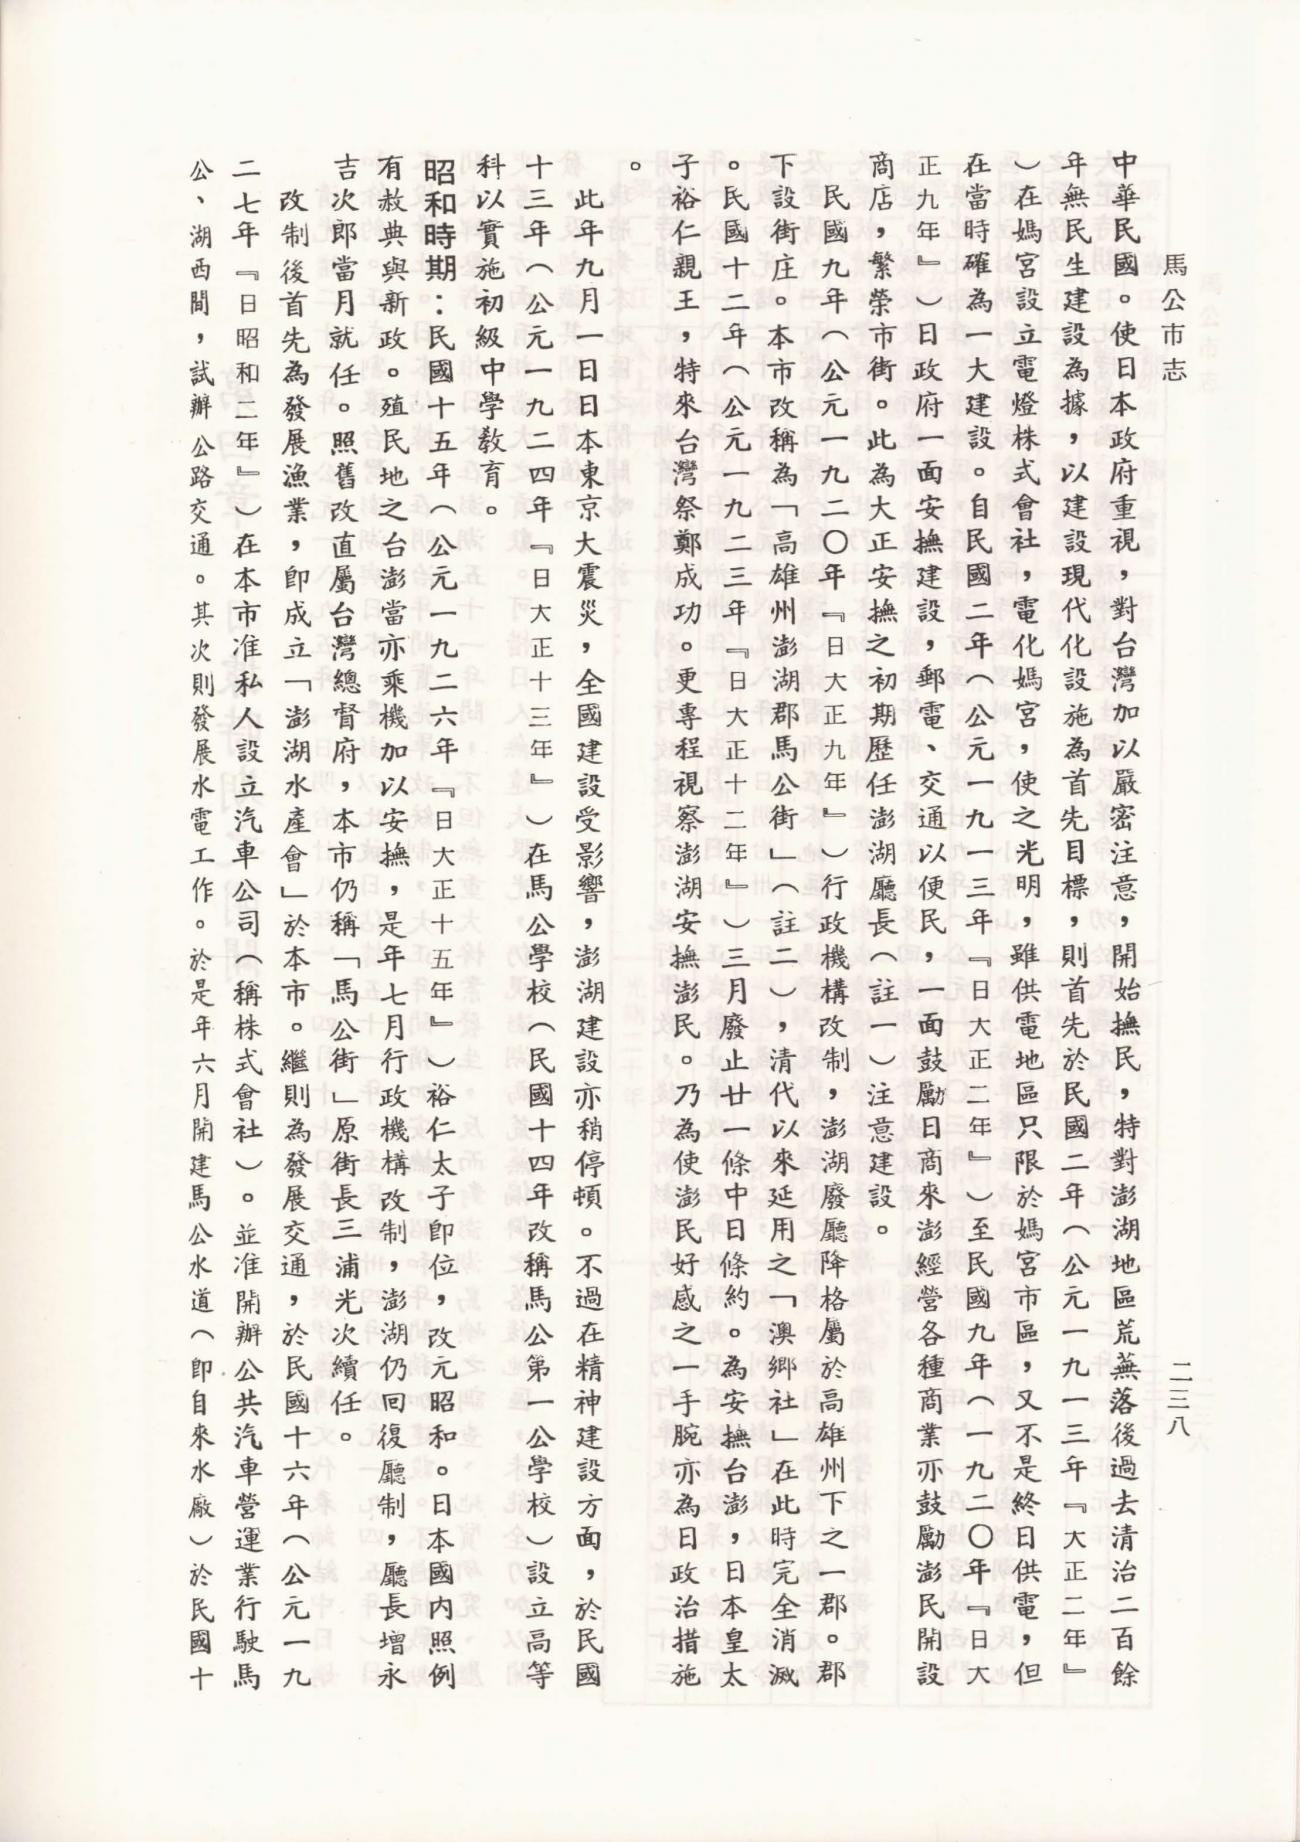 馬公市志
二三八
中華民國。使日本政府重視，對台灣加以嚴密注意，開始撫民，特對澎湖地區荒蕪落後過去清治二百餘
年無民生建設為據，以建設現代化設施為首先目標，則首先於民國二年（公元一九一三年『大正二年』
）在媽宮設立電燈株式會社，電化媽宮，使之光明，雖供電地區只限於媽宮市區，又不是終日供電，但
在當時確為一大建設。自民國二年（公元一九一三年『日大正二年』）至民國九年（一九二〇年『日大
正九年』）日政府一面安撫建設，郵電、交通以便民，一面鼓勵日商來澎經營各種商業亦鼓勵澎民開設
商店，繁榮市街。此為大正安撫之初期歷任澎湖廳長（註一）注意建設。
民國九年（公元一九二〇年『日大正九年』）行政機構改制，澎湖廢廳降格屬於高雄州下之一郡。郡
下設街庄。本市改稱為「高雄州澎湖郡馬公街」（註二），清代以來延用之「澳鄉社」在此時完全消滅
。民國十二年（公元一九二三年『日大正十二年』）三月廢止廿一條中日條約。為安撫台澎，日本皇太
子裕仁親王，特來台灣祭鄭成功。更專程視察澎湖安撫澎民。乃為使澎民好感之一手腕亦為日政治措施
。
此年九月一日日本東京大震災，全國建設受影響，澎湖建設亦稍停頓。不過在精神建設方面，於民國
十三年（公元一九二四年『日大正十三年』）在馬公學校（民國十四年改稱馬公第一公學校）設立高等
科以實施初級中學教育。
昭和時期：民國十五年（公元一九二六年『日大正十五年』）裕仁太子即位，改元昭和。日本國內照例
有赦典與新政。殖民地之台澎當亦乘機加以安撫，是年七月行政機構改制，澎湖仍回復廳制，廳長增永
吉次郎當月就任。照舊改直屬台灣總督府，本市仍稱「馬公街」原街長三浦光次續任。
改制後首先為發展漁業，即成立「澎湖水產會」於本市。繼則為發展交通，於民國十六年（公元一九
二七年『日昭和二年』）在本市准私人設立汽車公司（稱株式會社）。並准開辦公共汽車營運業行駛馬
公、湖西間，試辦公路交通。其次則發展水電工作。於是年六月開建馬公水道（即自來水廠）於民國十